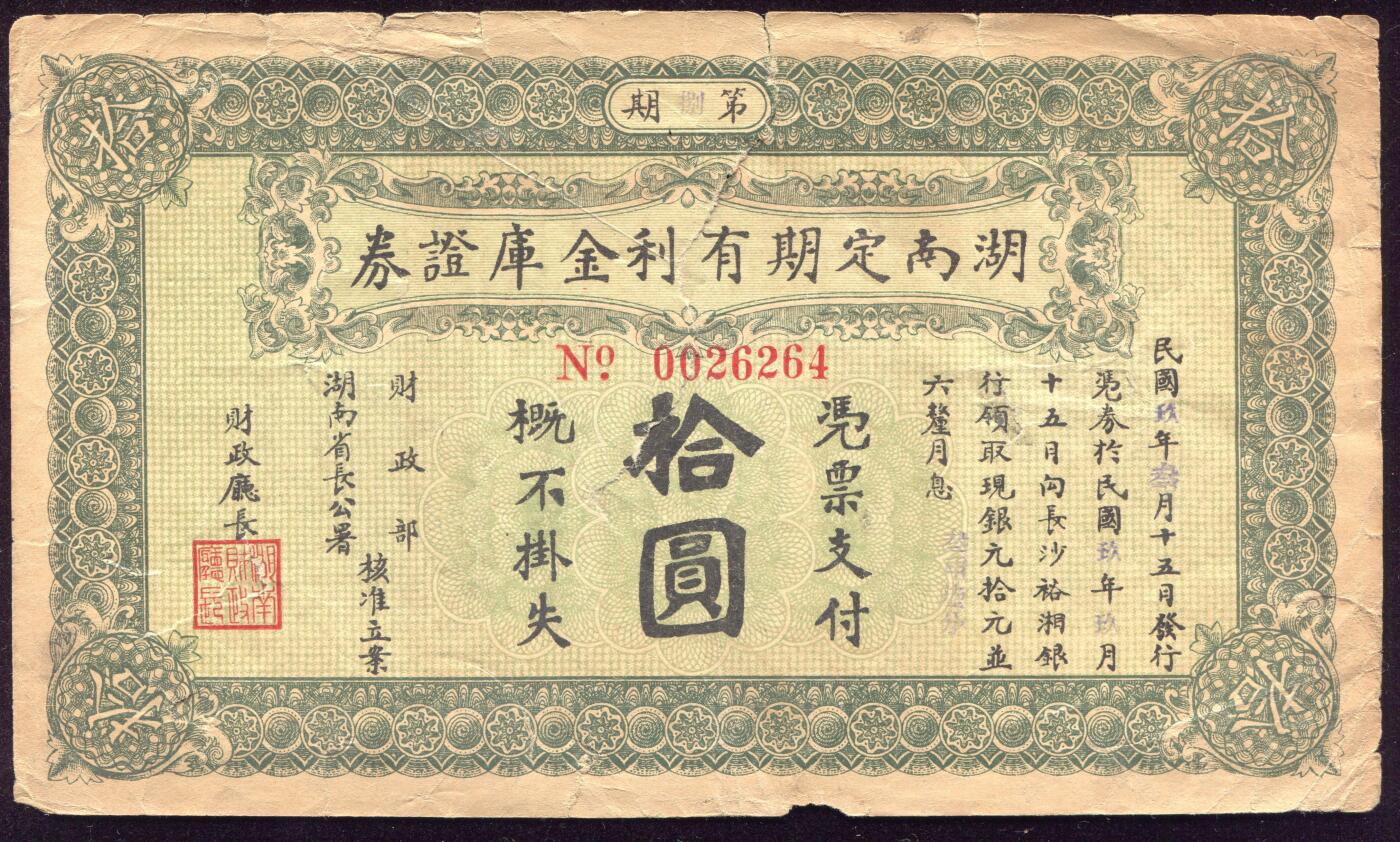 第捌期
拾
拾
湖南定期有利金庫證券
No 0026264
民國玖年叁月十五日發行
凴券於民國玖年玖月
十五日向長沙裕湘銀
行領取現銀元拾元並
六釐月息叁角陸分
凴票支付
拾圓
概不掛失
財政部
湖南省長公署
核准立案
財政廳長
湖南
財政
廳長
拾
拾